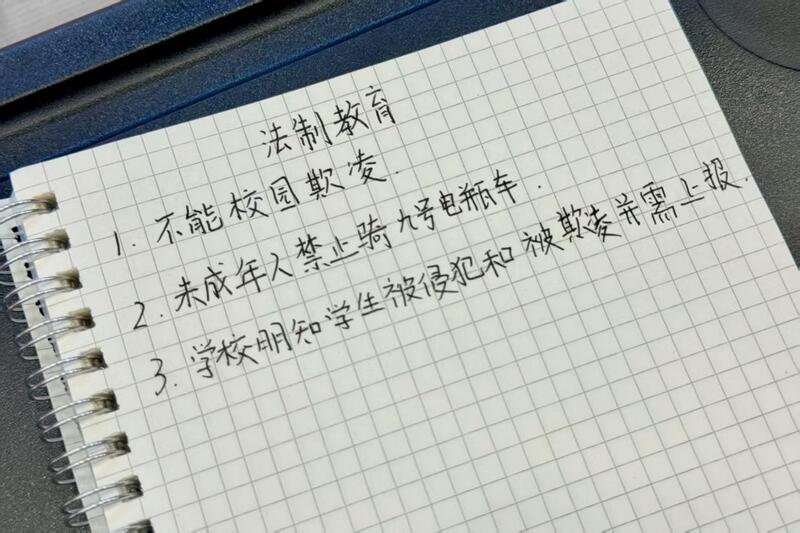 法制教育
1. 不能校园欺凌.
2. 未成年人禁止骑九号电瓶车.
3. 学校明知学生被侵犯和被欺凌并需上报.